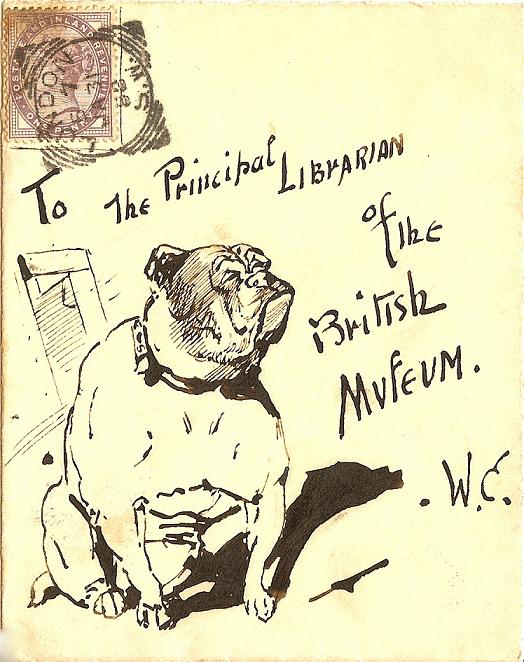 POSTAGE AND INLAND REVENUE
ONE PENNY
LONDON S.W.
88
To The Principal LIBRARIAN
of the
British
MUSEUM.
. W.C.